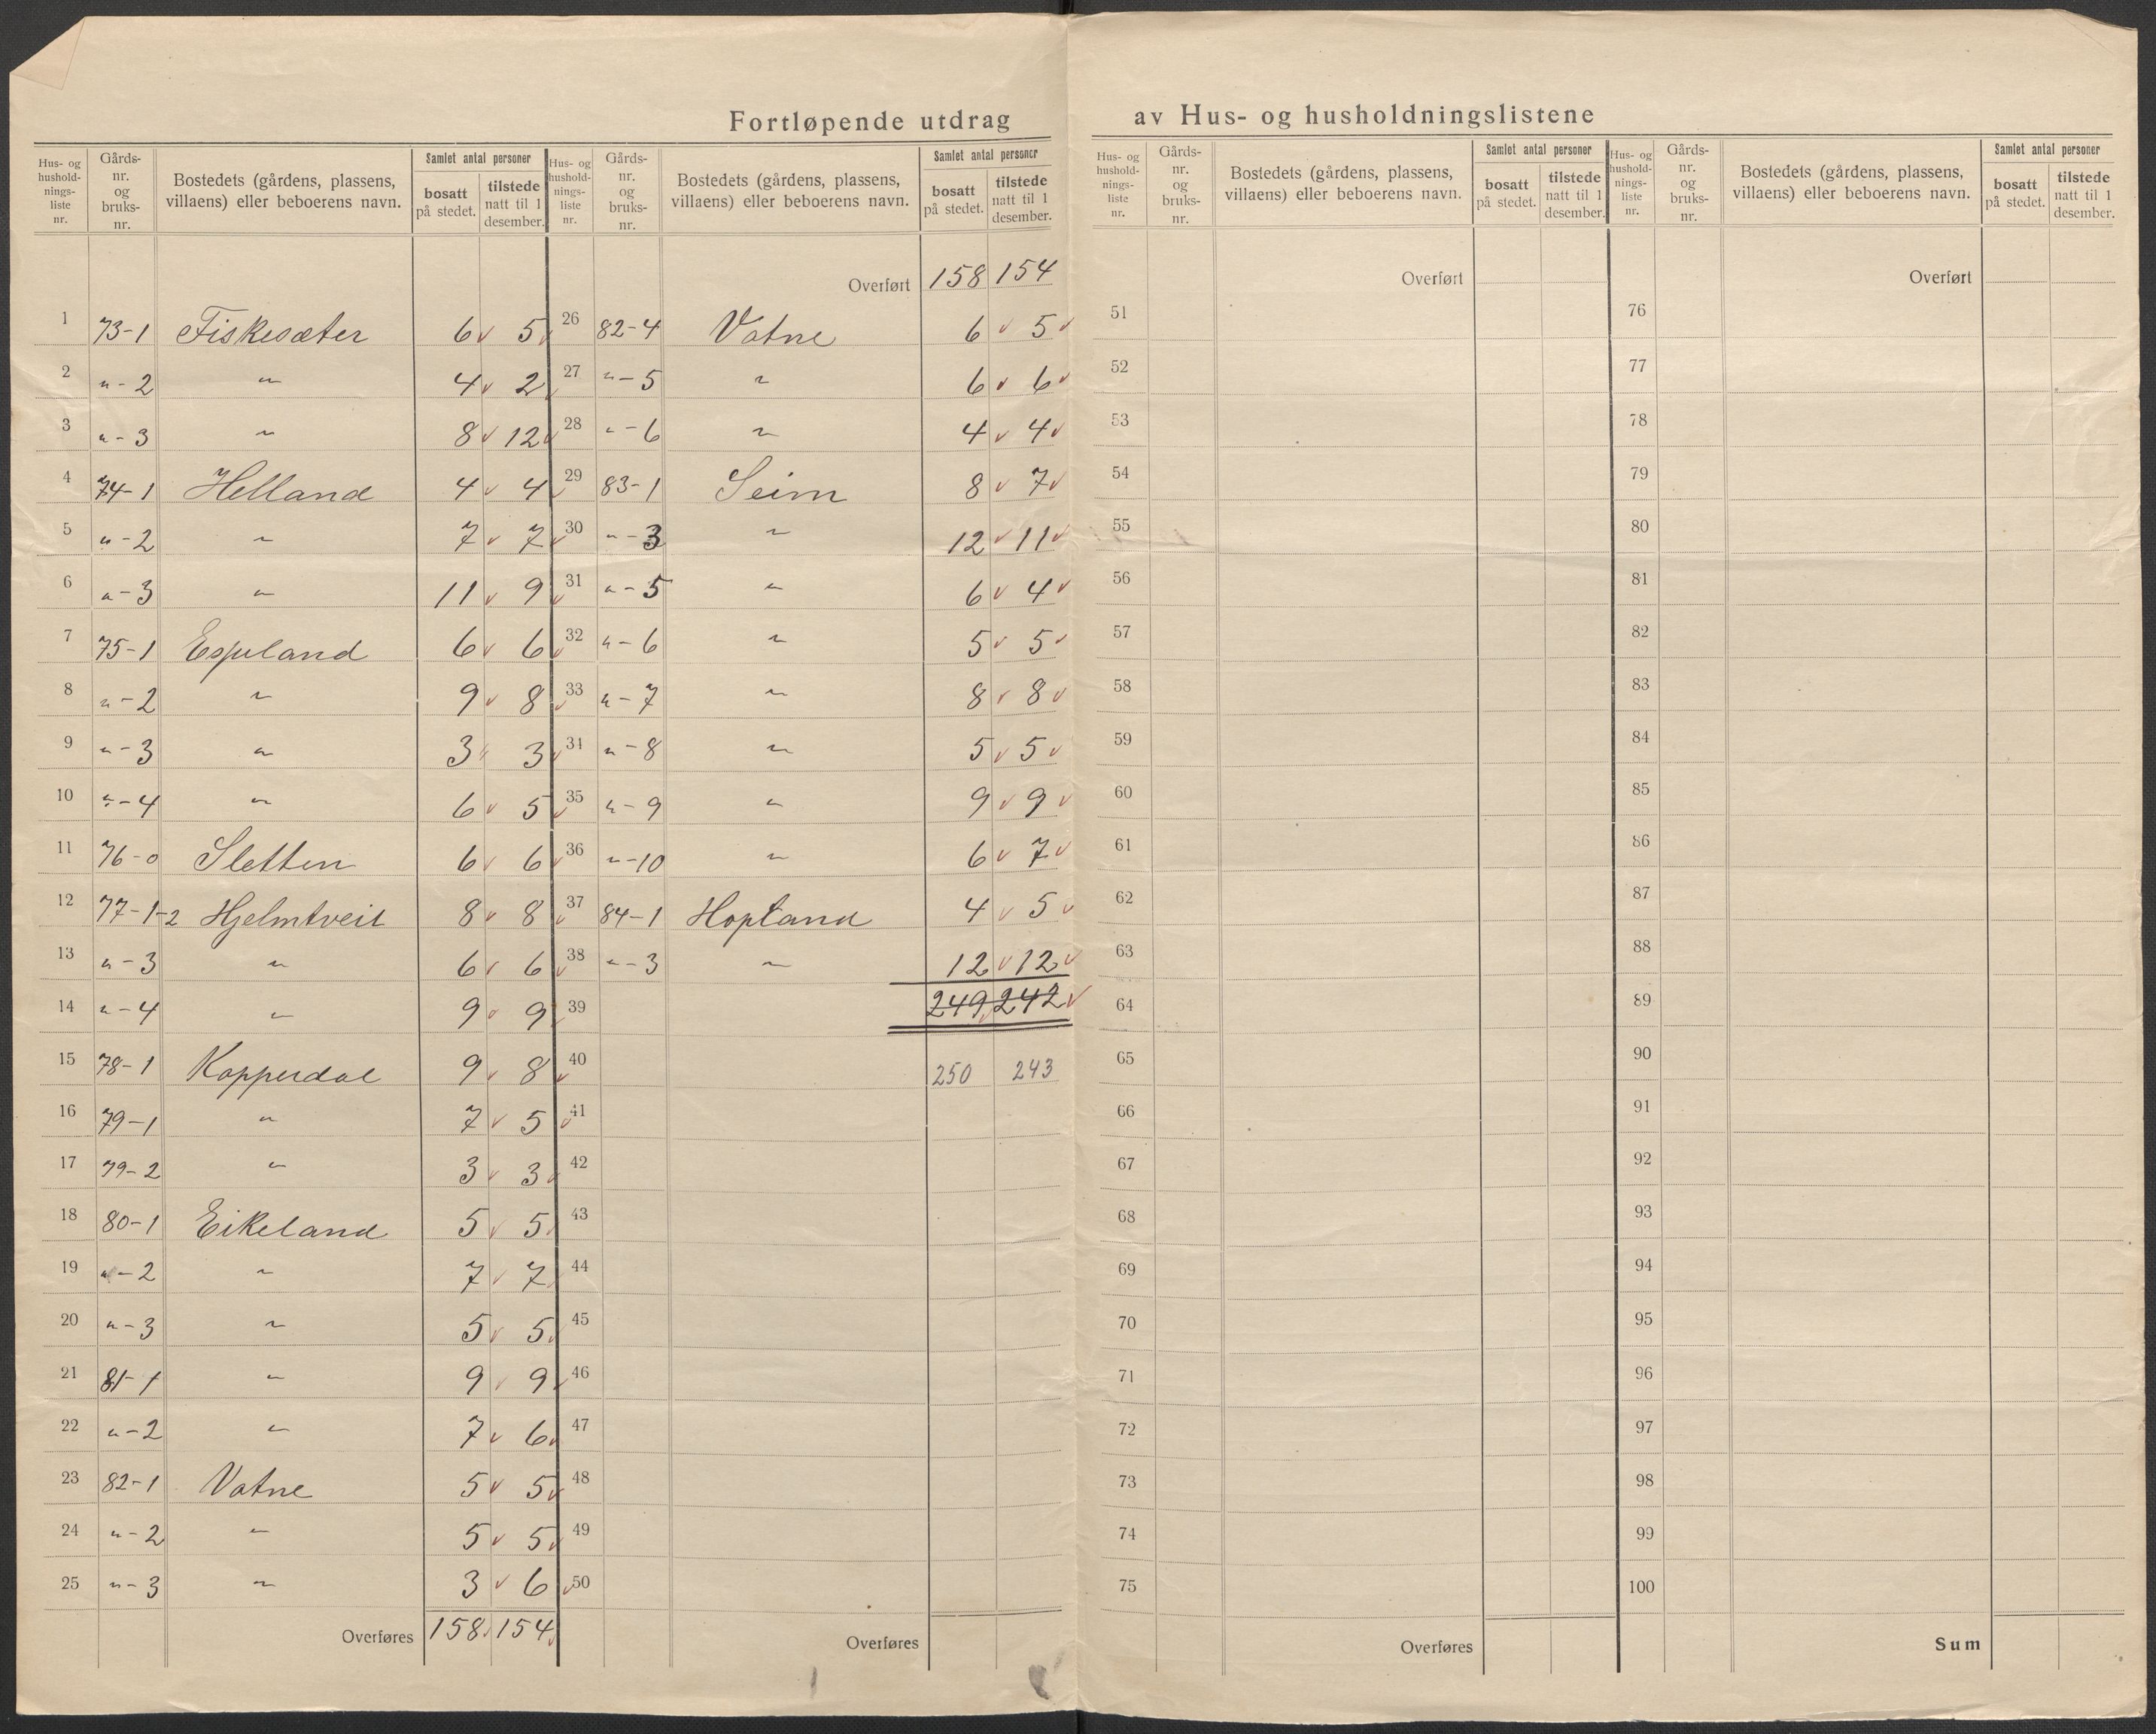 Fortløpende utdrag av Hus- og husholdningslistene
Hus- og hushold-nings-liste nr. | Gårds-nr. og bruks-nr. | Bostedets (gårdens, plassens, villaens) eller beboerens navn. | Samlet antal personer | bosatt på stedet. | tilstede natt til 1 desember.
1 73-1 Fiskesæter 6 5
2 " - 2 " 4 2
3 " - 3 " 8 12
4 74-1 Helland 4 4
5 " - 2 " 7 7
6 " - 3 " 11 9
7 75-1 Espeland 6 6
8 " - 2 " 9 8
9 " - 3 " 3 3
10 " - 4 " 6 5
11 76-0 Sletten 6 6
12 77-1-2 Hjelmtveit 8 8
13 " - 3 " 6 6
14 " - 4 " 9 9
15 78-1 Kopperdal 9 8
16 79-1 " 7 5
17 79-2 " 3 3
18 80-1 Eikeland 5 5
19 " - 2 " 7 7
20 " - 3 " 5 5
21 81-1 " 9 9
22 " - 2 " 7 6
23 82-1 Vatne 5 5
24 " - 2 " 5 5
25 " - 3 " 3 6
Overføres 158 154
Hus- og hushold-nings-liste nr. | Gårds-nr. og bruks-nr. | Bostedets (gårdens, plassens, villaens) eller beboerens navn. | Samlet antal personer | bosatt på stedet. | tilstede natt til 1 desember.
Overført 158 154
26 82-4 Vatne 6 5
27 " - 5 " 6 6
28 " - 6 " 4 4
29 83-1 Seim 8 7
30 " - 3 " 12 11
31 " - 5 " 6 4
32 " - 6 " 5 5
33 " - 7 " 8 8
34 " - 8 " 5 5
35 " - 9 " 9 9
36 " - 10 " 6 7
37 84-1 Hopland 4 5
38 " - 3 " 12 12
39 249 242
40 250 243
41
42
43
44
45
46
47
48
49
50
Overføres
Hus- og hushold-nings-liste nr. | Gårds-nr. og bruks-nr. | Bostedets (gårdens, plassens, villaens) eller beboerens navn. | Samlet antal personer | bosatt på stedet. | tilstede natt til 1 desember.
Overført
51
52
53
54
55
56
57
58
59
60
61
62
63
64
65
66
67
68
69
70
71
72
73
74
75
Overføres
Hus- og hushold-nings-liste nr. | Gårds-nr. og bruks-nr. | Bostedets (gårdens, plassens, villaens) eller beboerens navn. | Samlet antal personer | bosatt på stedet. | tilstede natt til 1 desember.
Overført
76
77
78
79
80
81
82
83
84
85
86
87
88
89
90
91
92
93
94
95
96
97
98
99
100
Sum